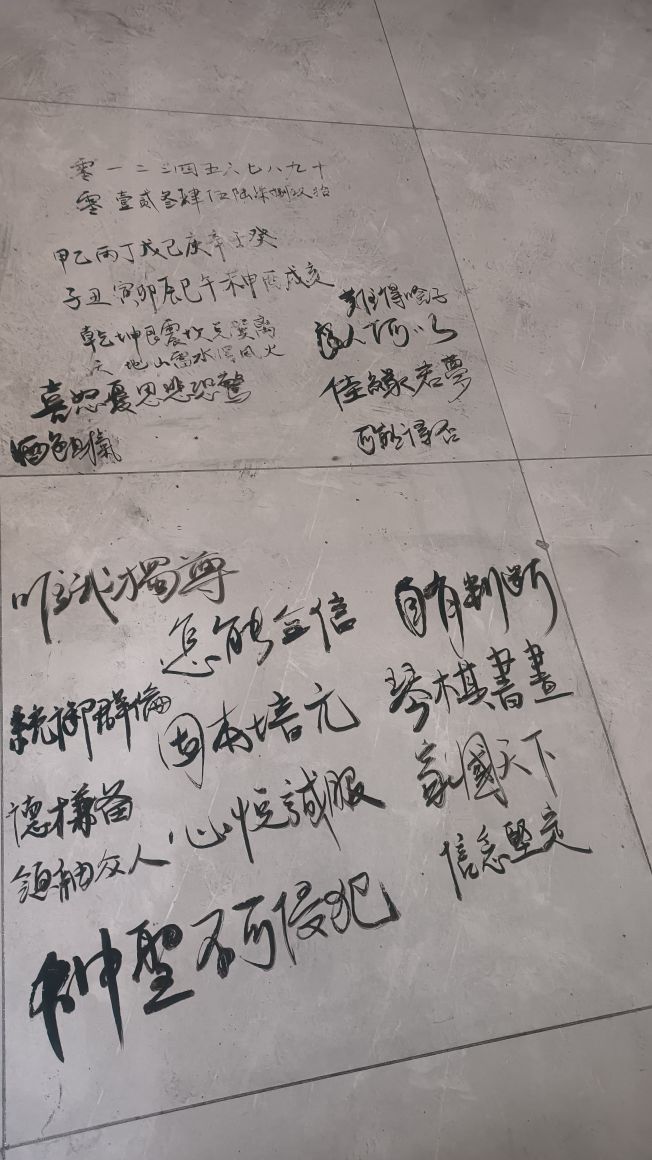 零一二三四五六七八九十
零壹贰叁肆伍陆柒捌玖拾
甲乙丙丁戊己庚辛壬癸
子丑寅卯辰巳午未申酉戌亥
乾坤艮震坎兑巽离
天地山雷水泽風火
喜怒憂思悲恐驚
酒色財氣
佳緣若夢
可能得否
唯我獨尊
怎能全信
自有判斷
統御群倫
固本培元
琴棋書畫
德樣留
心悅誠服
家國天下
領袖眾人
信念堅定
神聖不可侵犯